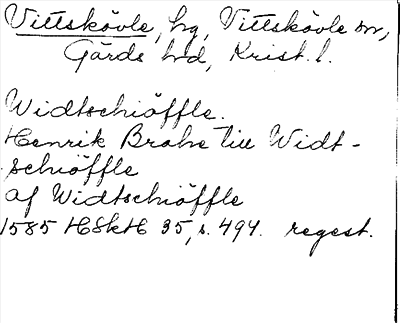 Vittskövle, hg, Vittskövle sn,
Gärds hd, Krist. l.
Widtschiöffle.
Henrik Brahe till Widt-
schiöffle
af Widtschiöffle
1585 HSkH 35, s. 494. regest.